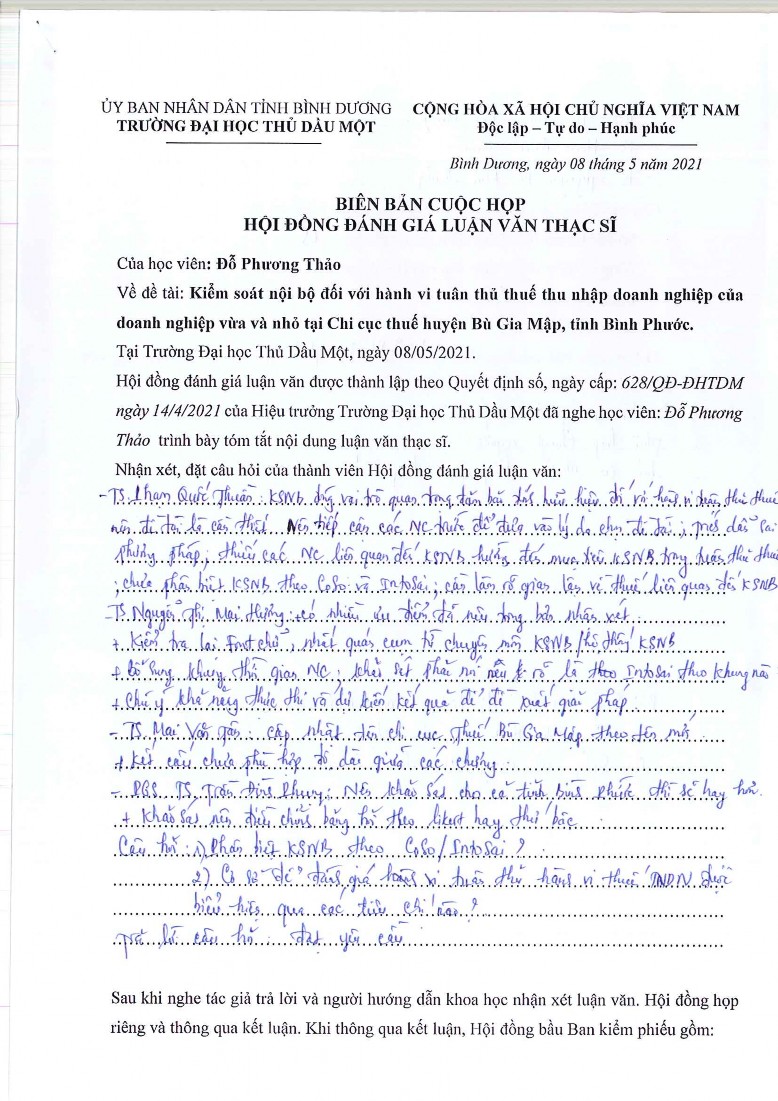 ỦY BAN NHÂN DÂN TỈNH BÌNH DƯƠNG
TRƯỜNG ĐẠI HỌC THỦ DẦU MỘT
CỘNG HÒA XÃ HỘI CHỦ NGHĨA VIỆT NAM
Độc lập – Tự do – Hạnh phúc
Bình Dương, ngày 08 tháng 5 năm 2021
BIÊN BẢN CUỘC HỌP
HỘI ĐỒNG ĐÁNH GIÁ LUẬN VĂN THẠC SĨ
Của học viên: Đỗ Phương Thảo
Về đề tài: Kiểm soát nội bộ đối với hành vi tuân thủ thuế thu nhập doanh nghiệp của
doanh nghiệp vừa và nhỏ tại Chi cục thuế huyện Bù Gia Mập, tỉnh Bình Phước.
Tại Trường Đại học Thủ Dầu Một, ngày 08/05/2021.
Hội đồng đánh giá luận văn được thành lập theo Quyết định số, ngày cấp: 628/QĐ-ĐHTDM
ngày 14/4/2021 của Hiệu trưởng Trường Đại học Thủ Dầu Một đã nghe học viên: Đỗ Phương
Thảo trình bày tóm tắt nội dung luận văn thạc sĩ.
Nhận xét, đặt câu hỏi của thành viên Hội đồng đánh giá luận văn:
- TS. Phạm Quốc Thuần: KSNB đóng vai trò quan trọng đảm bảo hữu hiệu đối với hành vi tuân thủ thuế
nên đề tài là cần thiết. Nên tiếp cận các NC trước để đưa vào lý do chọn đề tài;
phương pháp; thiếu các NC liên quan đến KSNB hướng đến KSNB trong tuân thủ thuế
; chưa phân biệt KSNB theo CoSo và IntoSai; cần làm rõ gian lận về thuế liên quan đến KSNB
- TS. Nguyễn Thị Mai Hương: có nhiều ưu điểm đã nêu trong bản nhận xét
+ Kiểm tra lại Font chữ, nhất quán cụm từ chuyên môn KSNB/hệ thống KSNB
+ Bổ sung khung thời gian NC; khảo sát phải nói nếu k rõ là theo IntoSai theo khung nào
+ Chú ý khả năng thực thi và dự kiến kết quả để đề xuất giải pháp
- TS. Mai Văn: cập nhật tên chi cục Thuế Bù Gia Mập theo tên mới
+ Kết cấu chưa phù hợp độ dài giữa các chương.
- PGS. TS. Trần Đình Phụng: Nên khảo sát cho cả tỉnh Bình Phước thì sẽ hay hơn.
+ Khảo sát nên điều chỉnh bảng hỏi theo likert hay thứ bậc
Câu hỏi: 1) Phân biệt KSNB theo CoSo/IntoSai?
2) Cơ sở để đánh giá hành vi tuân thủ hành vi thuế TNDN được
biểu hiện qua các tiêu chí nào?
Trả lời câu hỏi: đạt yêu cầu
Sau khi nghe tác giả trả lời và người hướng dẫn khoa học nhận xét luận văn. Hội đồng họp
riêng và thông qua kết luận. Khi thông qua kết luận, Hội đồng bầu Ban kiểm phiếu gồm: